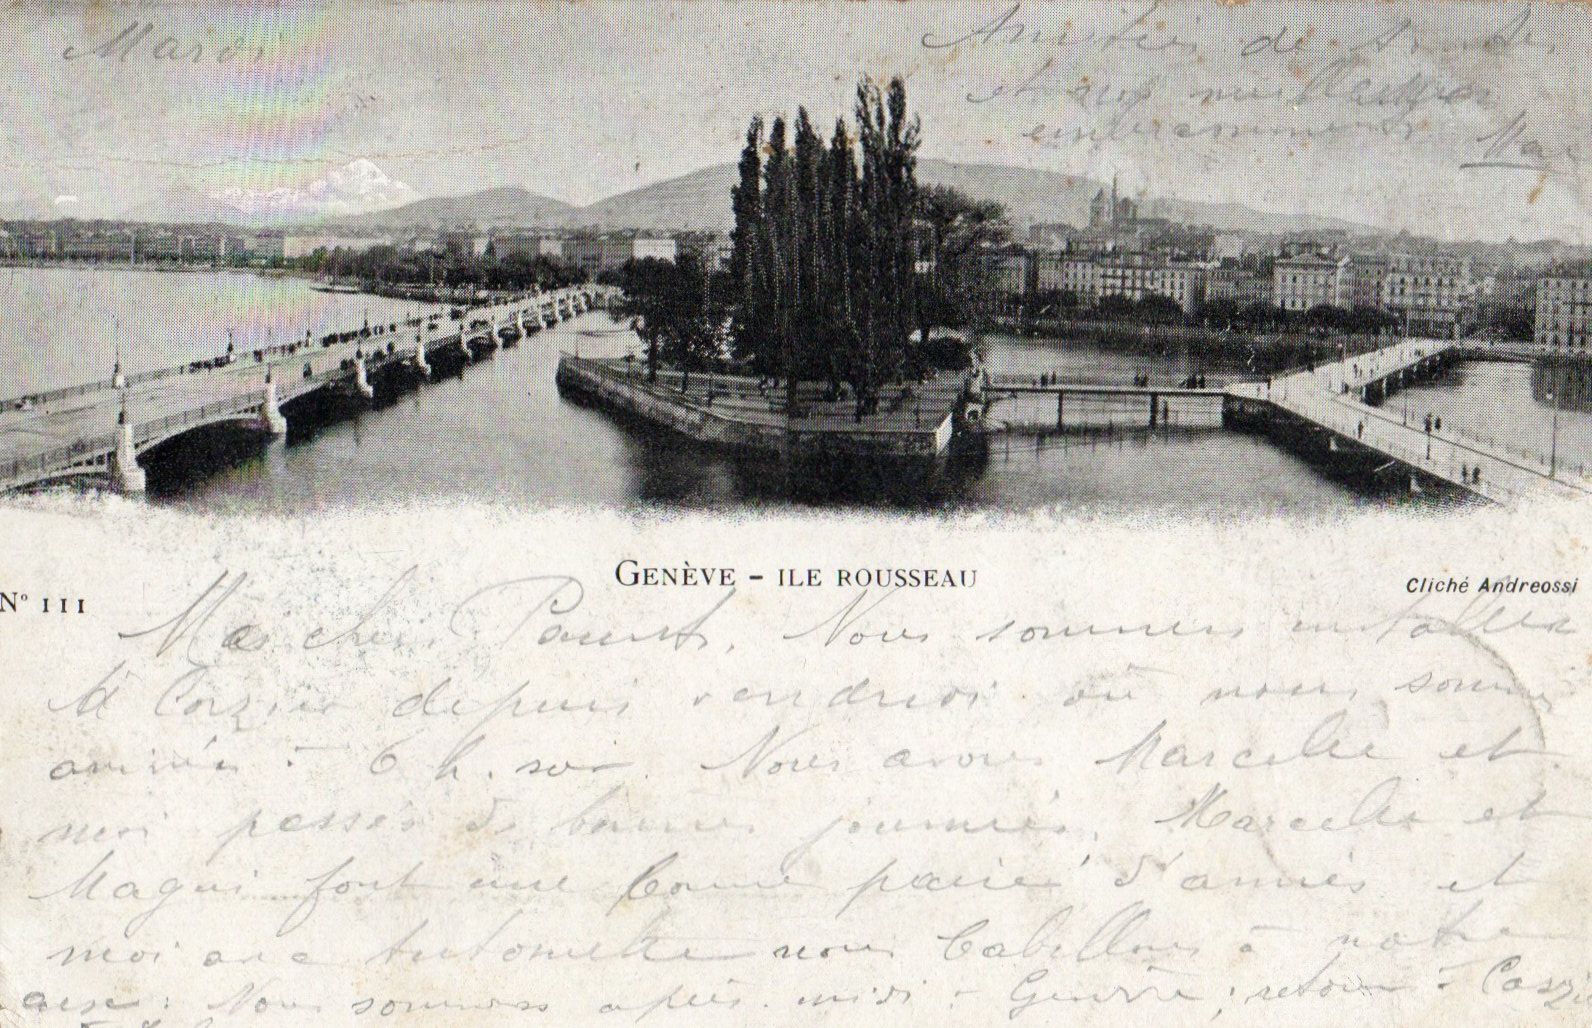 Mardi
Amitiés de
et aux meilleures
Max
GENÈVE - ILE ROUSSEAU
Cliché Andreossi
N° 111
Mes chers Parents, Nous sommes installés
à Corzier depuis vendredi où nous sommes
arrivés à 6 h. soir. Nous avons Marcelle et
moi passés de bonnes journées. Marcelle et
Magui font une bonne paire d'amies et
moi avec nous babillons à notre
aise. Nous sommes après-midi à Genève; retour à